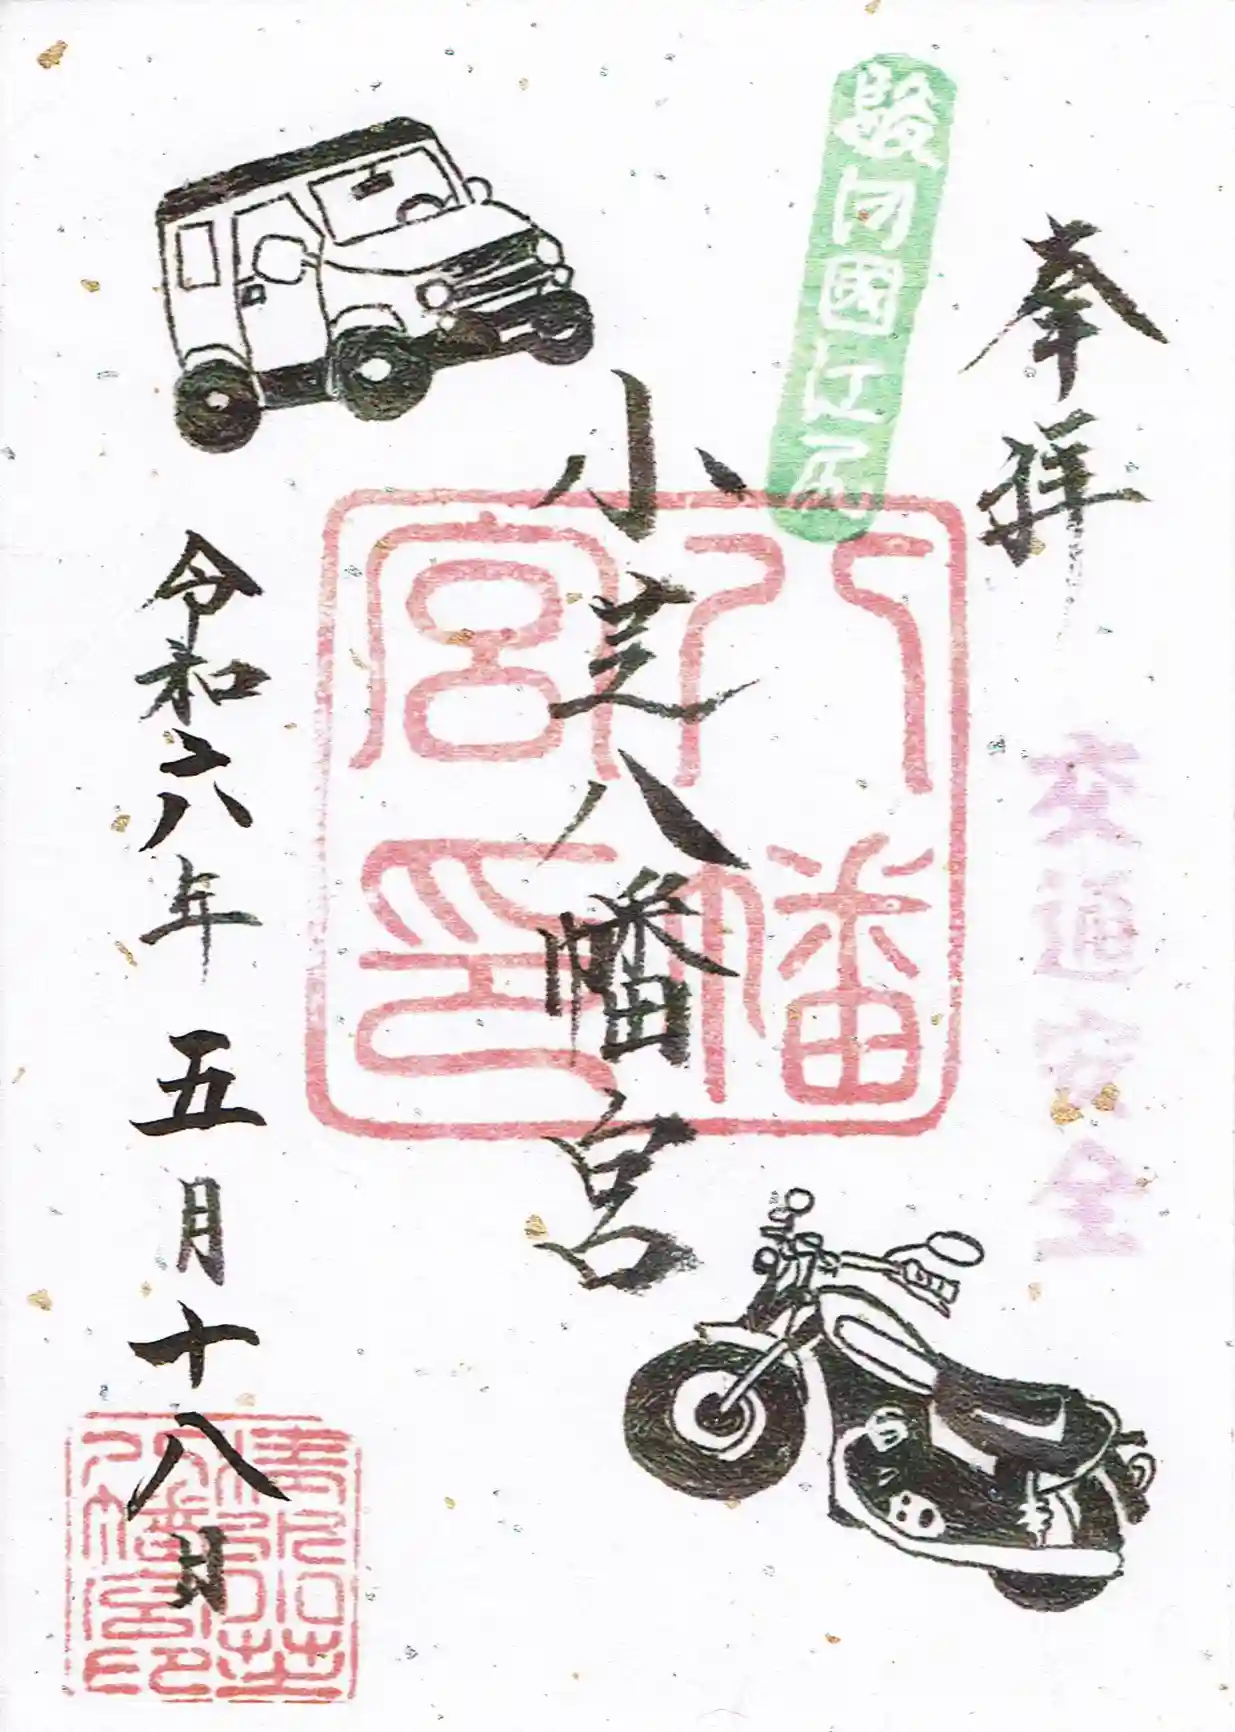 奉拝
交通安全
駿河國江尻
小芝八幡宮
八幡宮印
令和六年五月十八日